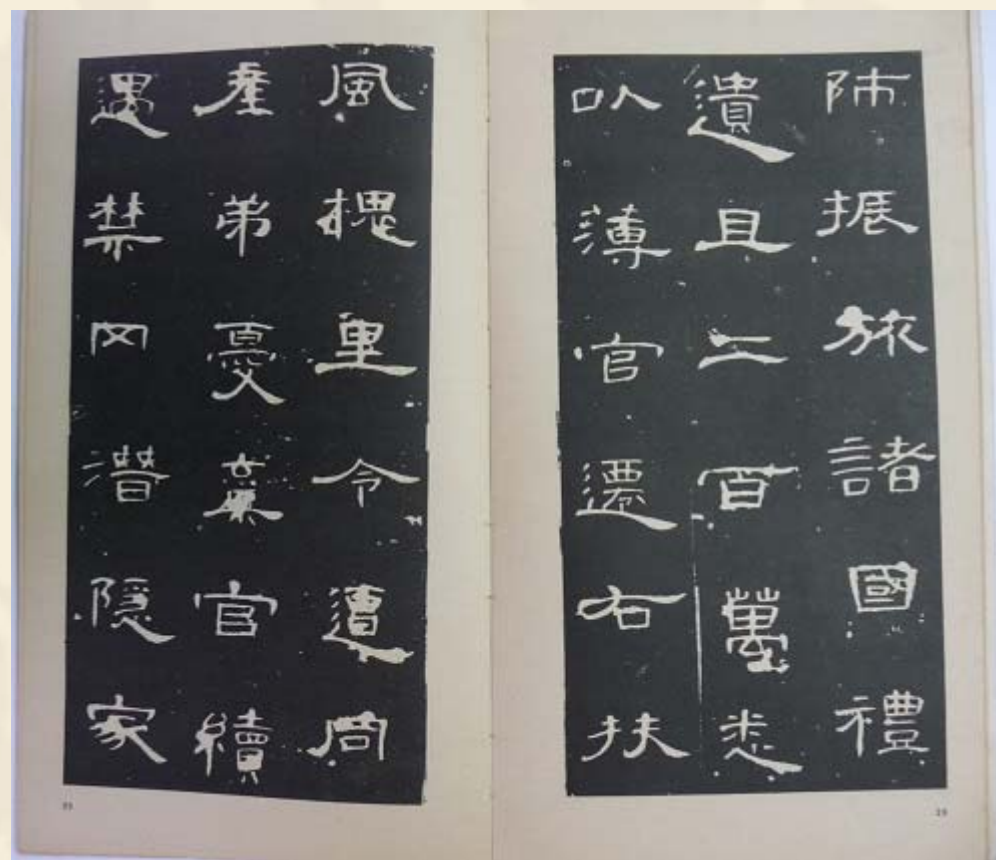 師振旅諸國禮
遺且二百萬悉
以薄官遷右扶
風槐里令遭同
產弟憂棄官續
遇禁网潛隱家